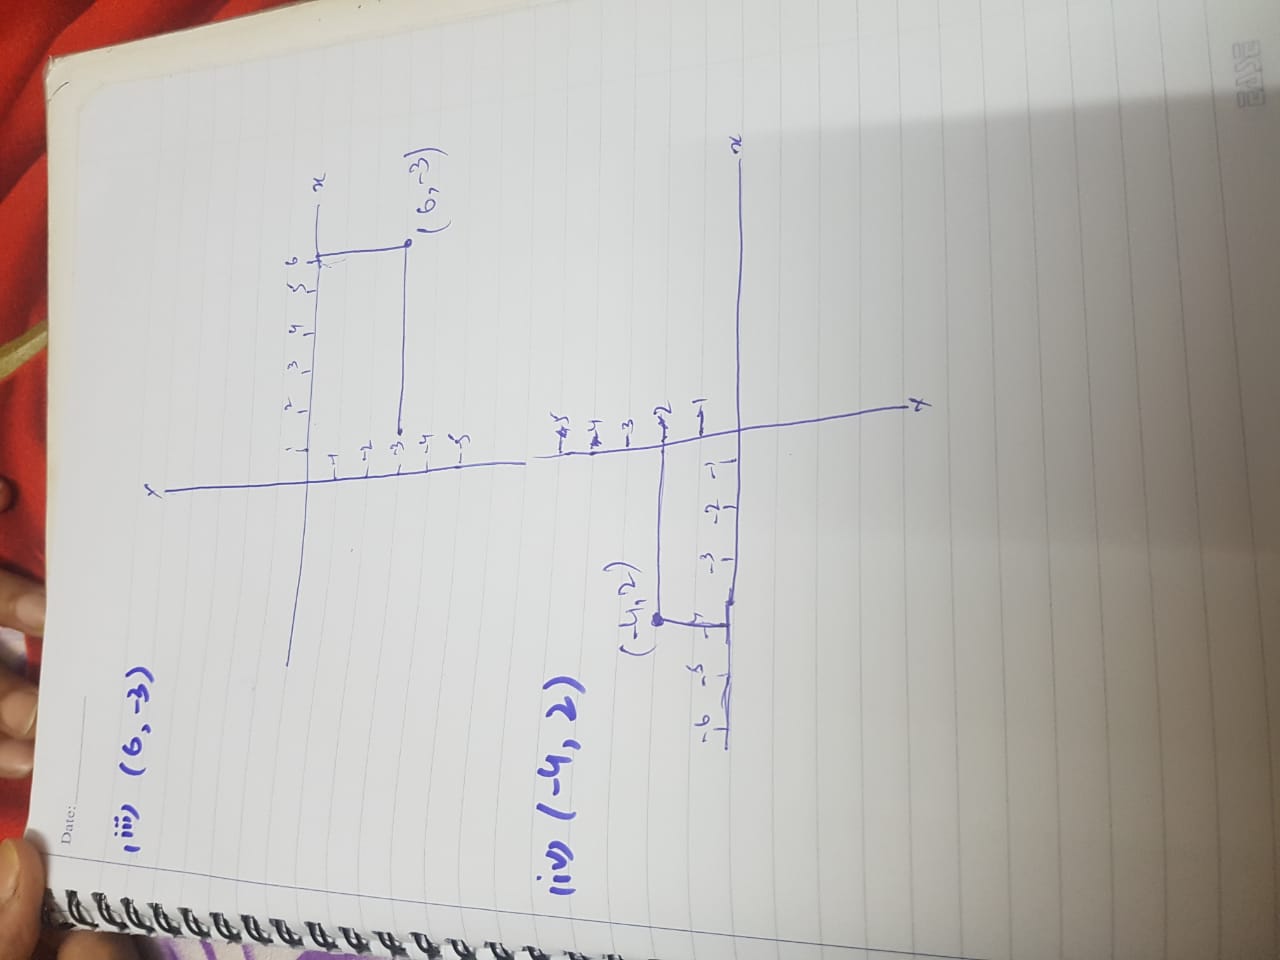 Date:
(iii) (6, -3)
x
1 2 3 4 5 6
x
-1
-2
-3
-4
-5
(6, -3)
(iv) (-4, 2)
5
4
-3
2
1
(-4, 2)
-6 -5 -4 -3 -2 -1
x